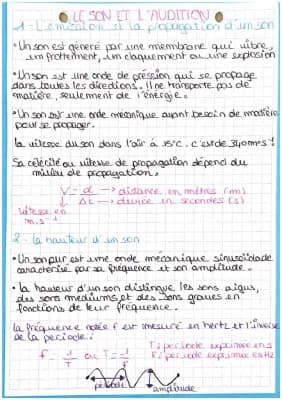 LE SON ET L'AUDITION
1 - L'émission et la propagation d'un son
• Un son est généré par une membrane qui vibre,
un frottement, un claquement ou une explosion
• Un son est une onde de pression qui se propage
dans toutes les directions. Il ne transporte pas de
matière, seulement de l'énergie.
• Un son est une onde mécanique ayant besoin de matière
pour se propager.
La vitesse du son dans l'air à 15°C. c'est de 340 m•s⁻¹
Sa célérité ou vitesse de propagation dépend du
milieu de propagation.
V = d → distance en mètres (m)
↓ Δt → durée en secondes (s)
vitesse en
m.s⁻¹
2 - La hauteur d'un son
• Un son pur est une onde mécanique sinusoïdale
caractérisé par sa fréquence et son amplitude.
• La hauteur d'un son distingue les sons aigus,
des sons mediums et des sons graves en
fonctions de leur fréquence.
La fréquence notée f est mesuré en hertz et l'inverse
de la periode:
f = 1/T ou T = 1/f
T: periode exprimée en s
F: periode exprimée en Hz
période
amplitude